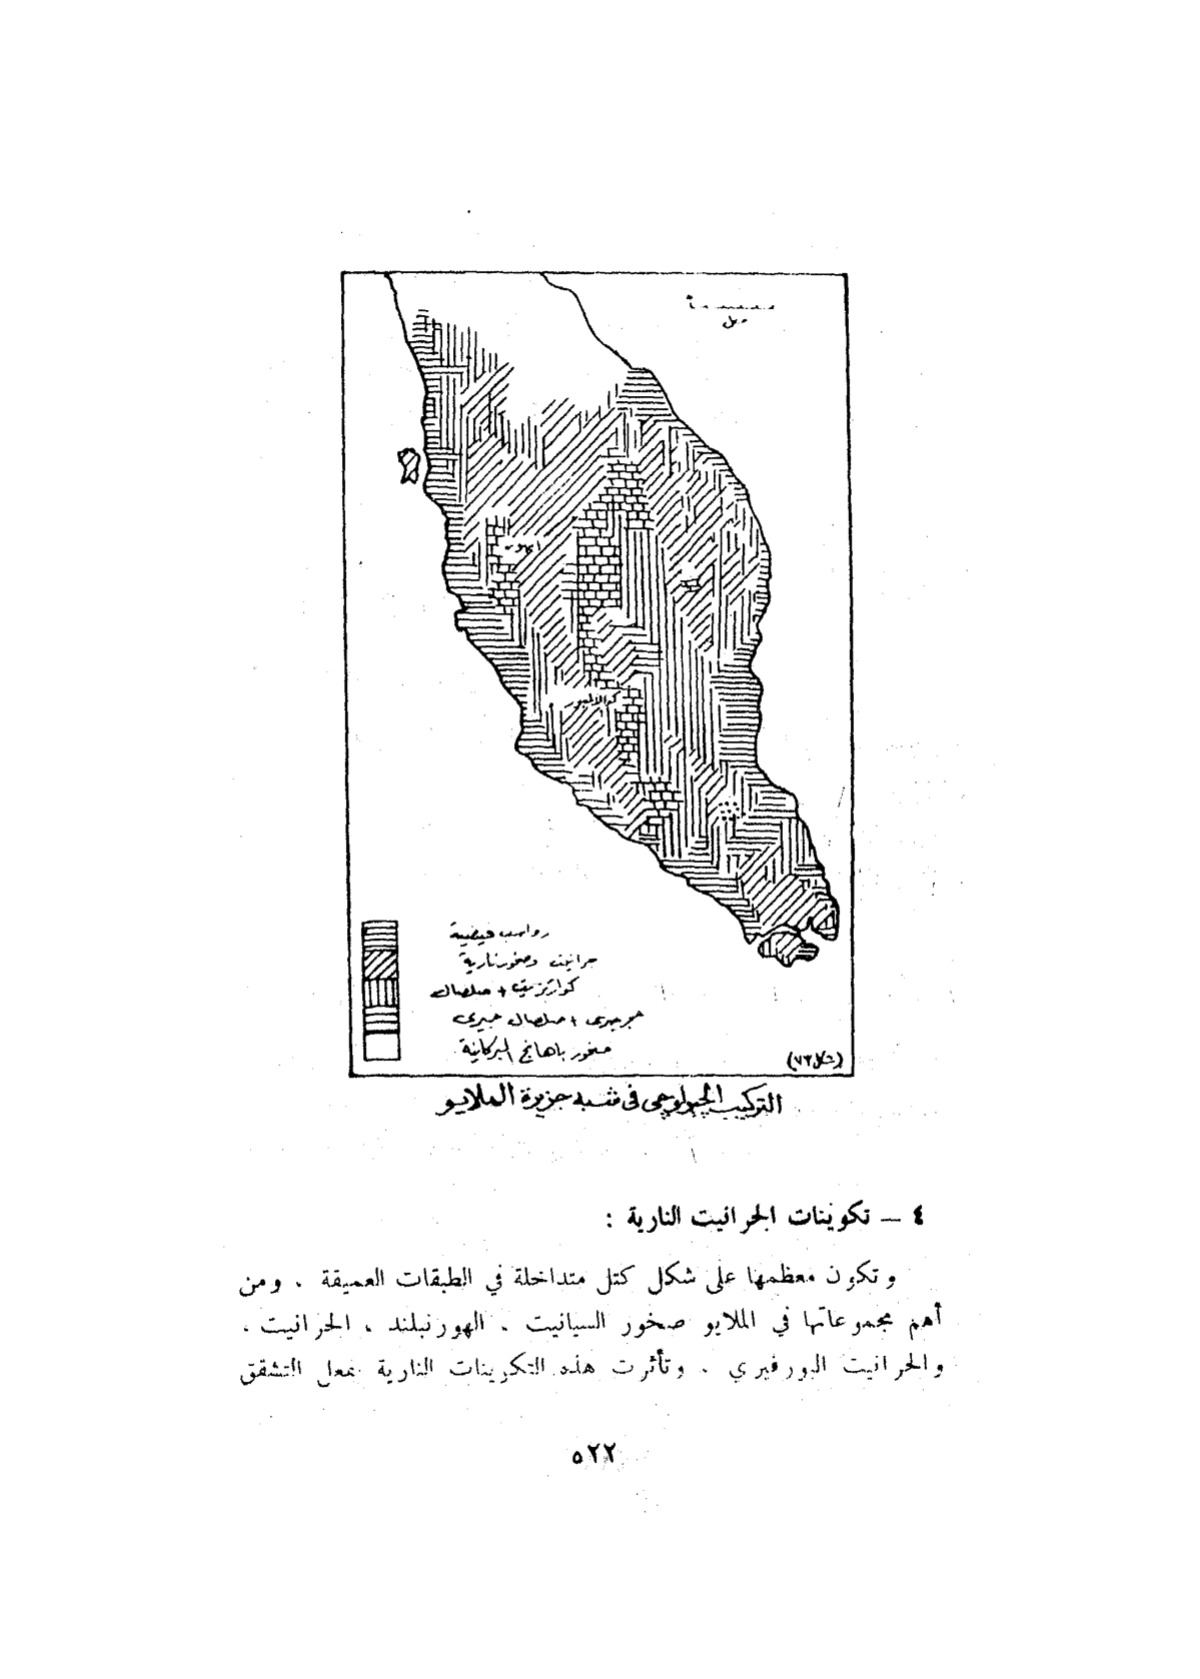 ميل
كوالالمبور
رواسب فيضية
جرانيت وصخور نارية
كوارتزيت + صلصال
حجر جيرى + صلصال جيرى
صخور باهانج البركانية
(شكل ٧٢)
التركيب الجيولوجى فى شبه جزيرة الملايو
٤ – تكوينات الجرانيت النارية :
وتكون معظمها على شكل كتل متداخلة في الطبقات العميقة . ومن
أهم مجموعاتها في الملايو صخور السيانيت . الهورنبلند ، الجرانيت .
والجرانيت البورفيري . وتأثرت هذه التكوينات النارية بفعل التشقق
٥٢٢